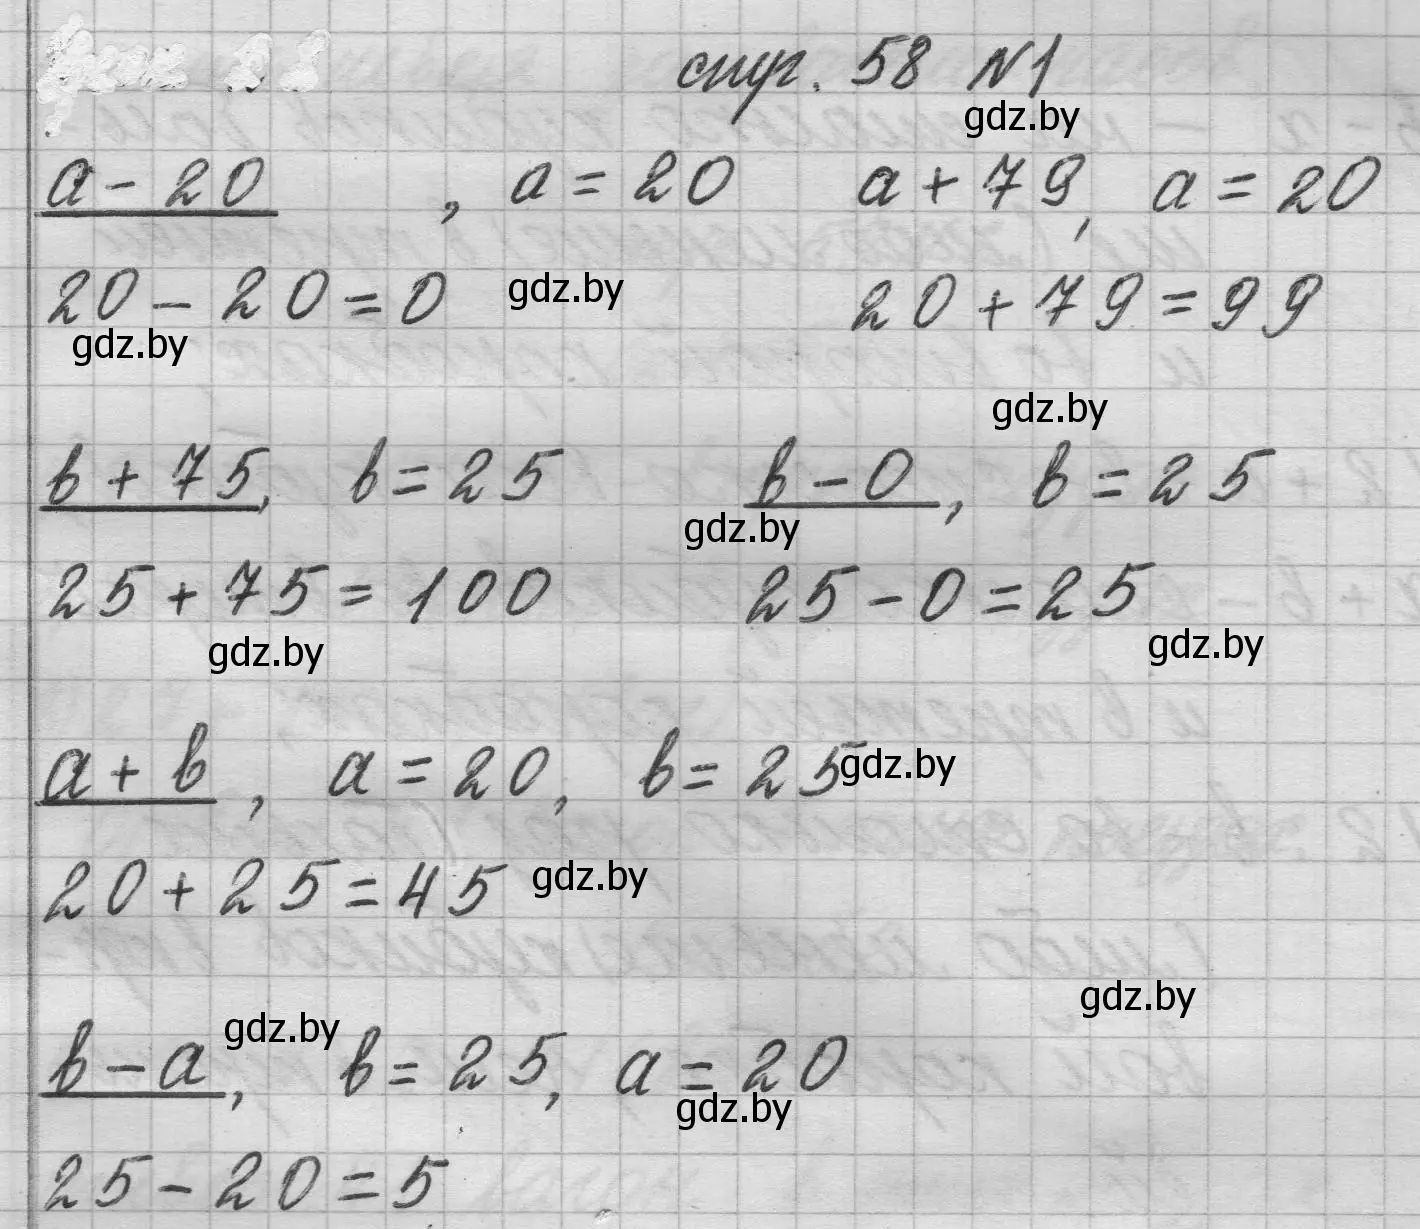 стр. 58 №1
gdz.by
a - 20 , a = 20 a + 79, a = 20
20 - 20 = 0 gdz.by 20 + 79 = 99
gdz.by
gdz.by
b + 75, b = 25 b - 0, b = 25
gdz.by
25 + 75 = 100 25 - 0 = 25
gdz.by gdz.by
a + b, a = 20, b = 25 gdz.by
20 + 25 = 45 gdz.by
gdz.by
gdz.by
b - a, b = 25, a = 20
gdz.by
25 - 20 = 5